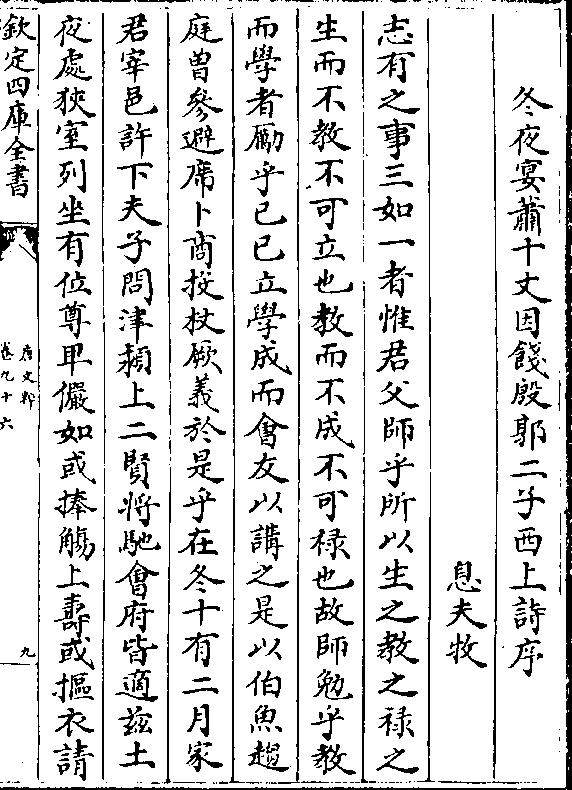 冬夜宴蕭十丈因餞殷郭二子西上詩序
息夫牧
志有之事三如一者惟君父師乎所以生之教之禄之
生而不教不可立也教而不成不可禄也故師勉乎教
而學者勵乎已已立學成而㑹友以講之是以伯魚趨
庭曽參避席卜商投杖厥義於是乎在冬十有二月家
君宰邑許下夫子問津潁上二賢將馳㑹府皆適兹土
夜處狹室列坐有位尊卑儼如或捧觴上壽或摳衣請
欽定四庫全書
唐文粹
卷九十六
九